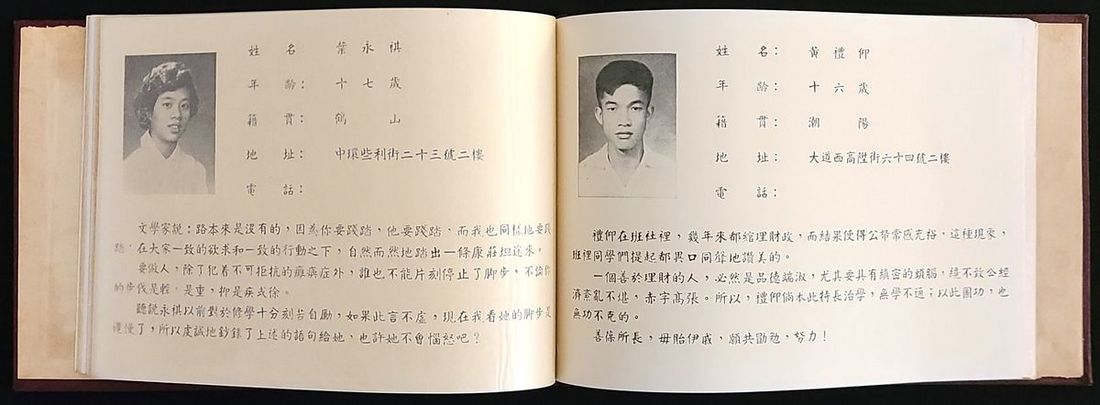 姓名 葉永祺
年齡：十七歲
籍貫：鶴山
地址：中環些利街二十三號二樓
電話：
文學家說：路本來是沒有的，因為你要踐踏，他要踐踏，而我也同樣地要踐
踏，在大家一致的欲求和一致的行動之下，自然而然地踏出一條康莊坦途來。
要做人，除了犯着不可抵抗的癱瘓症外，誰也不能片刻停止了脚步，不論你
的步伐是輕，是重，抑是疾或徐。
聽說永祺以前對於修學十分刻苦自勵，如果此言不虛，現在我看她的脚步是
慢了，所以虔誠地鈔錄了上述的語句給她，也許她不會惱怒吧？
姓名：黃禮仰
年齡：十六歲
籍貫：潮陽
地址：大道西高陞街六十四號二樓
電話：
禮仰在班社裡，幾年來都綰理財政，而結果使得公帑常感充裕，這種現象，
班裡同學們提起都異口同聲地讚美的。
一個善於理財的人，必然是品德端淑，尤其要具有縝密的頭腦，纔不致公經
濟紊亂不堪，赤字高張。所以，禮仰倘本此特長治學，無學不通；以此圖功，也
無功不克的。
善葆所長，毋貽伊戚，願共勖勉，努力！